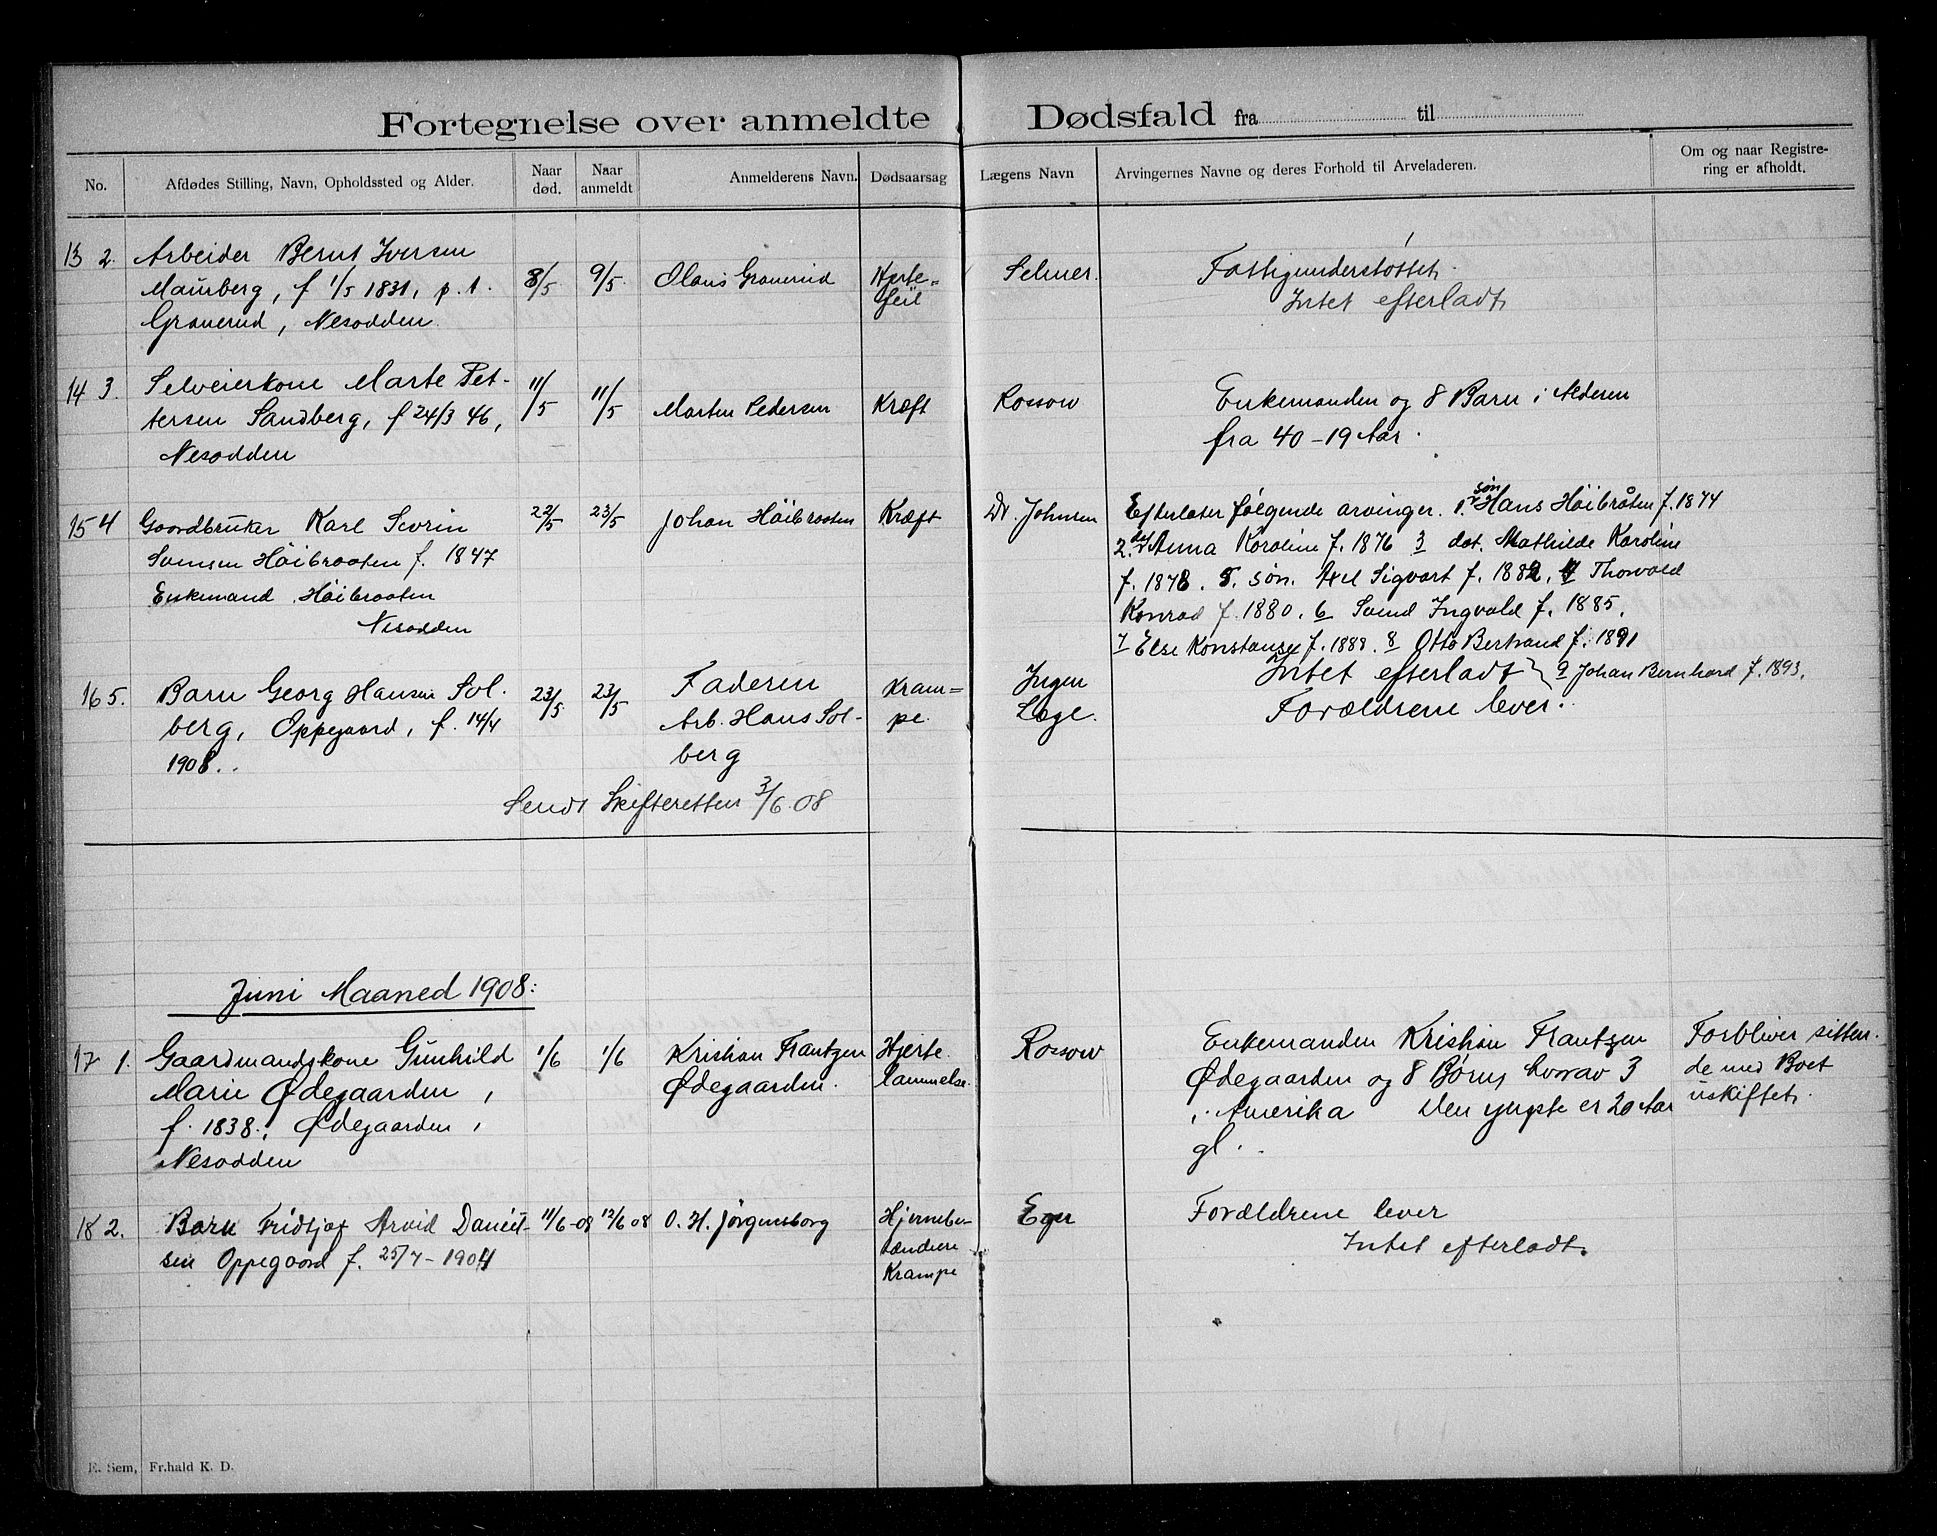 Fortegnelse over anmeldte Dødsfald fra til
No.
Afdødes Stilling, Navn, Opholdssted og Alder.
Naar død.
Naar anmeldt
Anmelderens Navn.
Dødsaarsag
Lægens Navn
Arvingernes Navne og deres Forhold til Arveladeren.
Om og naar Registre-
ring er afholdt.
13 2.
Arbeider Bernt Iversen
Maurberg, f 1/5 1831, p.t.
Graverud, Nesodden.
8/5
9/5
Olaus Graverud
Hjerte=
feil
Selmer.
Fattigunderstøttet.
Intet efterladt
14 3.
Selveierkone Marte Pet-
tersen Sandberg, f 24/3 46,
Nesodden
11/5
11/5
Marten Pedersen
Kræft
Rossow
Enkemanden og 8 Barn i Alderen
fra 40-19 Aar.
15 4
Gaardbruker Karl Sevrin
Svensen Høibraaten f. 1847
Enkemand Høibraaten
Nesodden
22/5
23/5
Johan Høibraaten
Kræft
Dr. Johnsen
Efterlater følgende arvinger. 1. søn Hans Høibråten f. 1874
2. Anna Karoline f. 1876 3 dat. Mathilde Karoline
f. 1878. 5. søn. Axel Sigvart f. 1882. 4 Thorvald
Konrad f. 1880. 6 Svend Ingvald f. 1885.
7 Else Konstanse f. 1888. 8 Otto Bertrand f. 1891
9 Johan Bernhard f. 1893.
16 5.
Barn Georg Hansen Sol-
berg, Oppegaard, f. 14/4
1908..
23/5
23/5
Faderen
Arb. Hans Sol-
berg
Kram=
pe.
Ingen
Læge.
Intet efterladt
Forældrene lever.
Sendt Skifteretten 3/6.08
Juni Maaned 1908:
17 1.
Gaardmandskone Gunhild
Marie Ødegaarden,
f. 1838., Ødegaarden,
Nesodden
1/6
1/6
Kristian Frantzen
Ødegaarden.
Hjerte
lammelse.
Rossow
Enkemanden Kristian Frantzen
Ødegaarden og 8 Børn, hvorav 3
i Amerika Den yngste er 20 Aar
gl.
Forbliver sitten-
de med Boet
uskiftet.
18 2.
Barn Fridtjof Arvid Daniel-
sen Oppegaard f. 25/7-1904
11/6-08
12/6 08
O. H. Jørgensborg
Hjernebe-
tændelse
Krampe
Eger
Forældrene lever
Intet efterladt.
E. Sem, Fr.hald K. D.